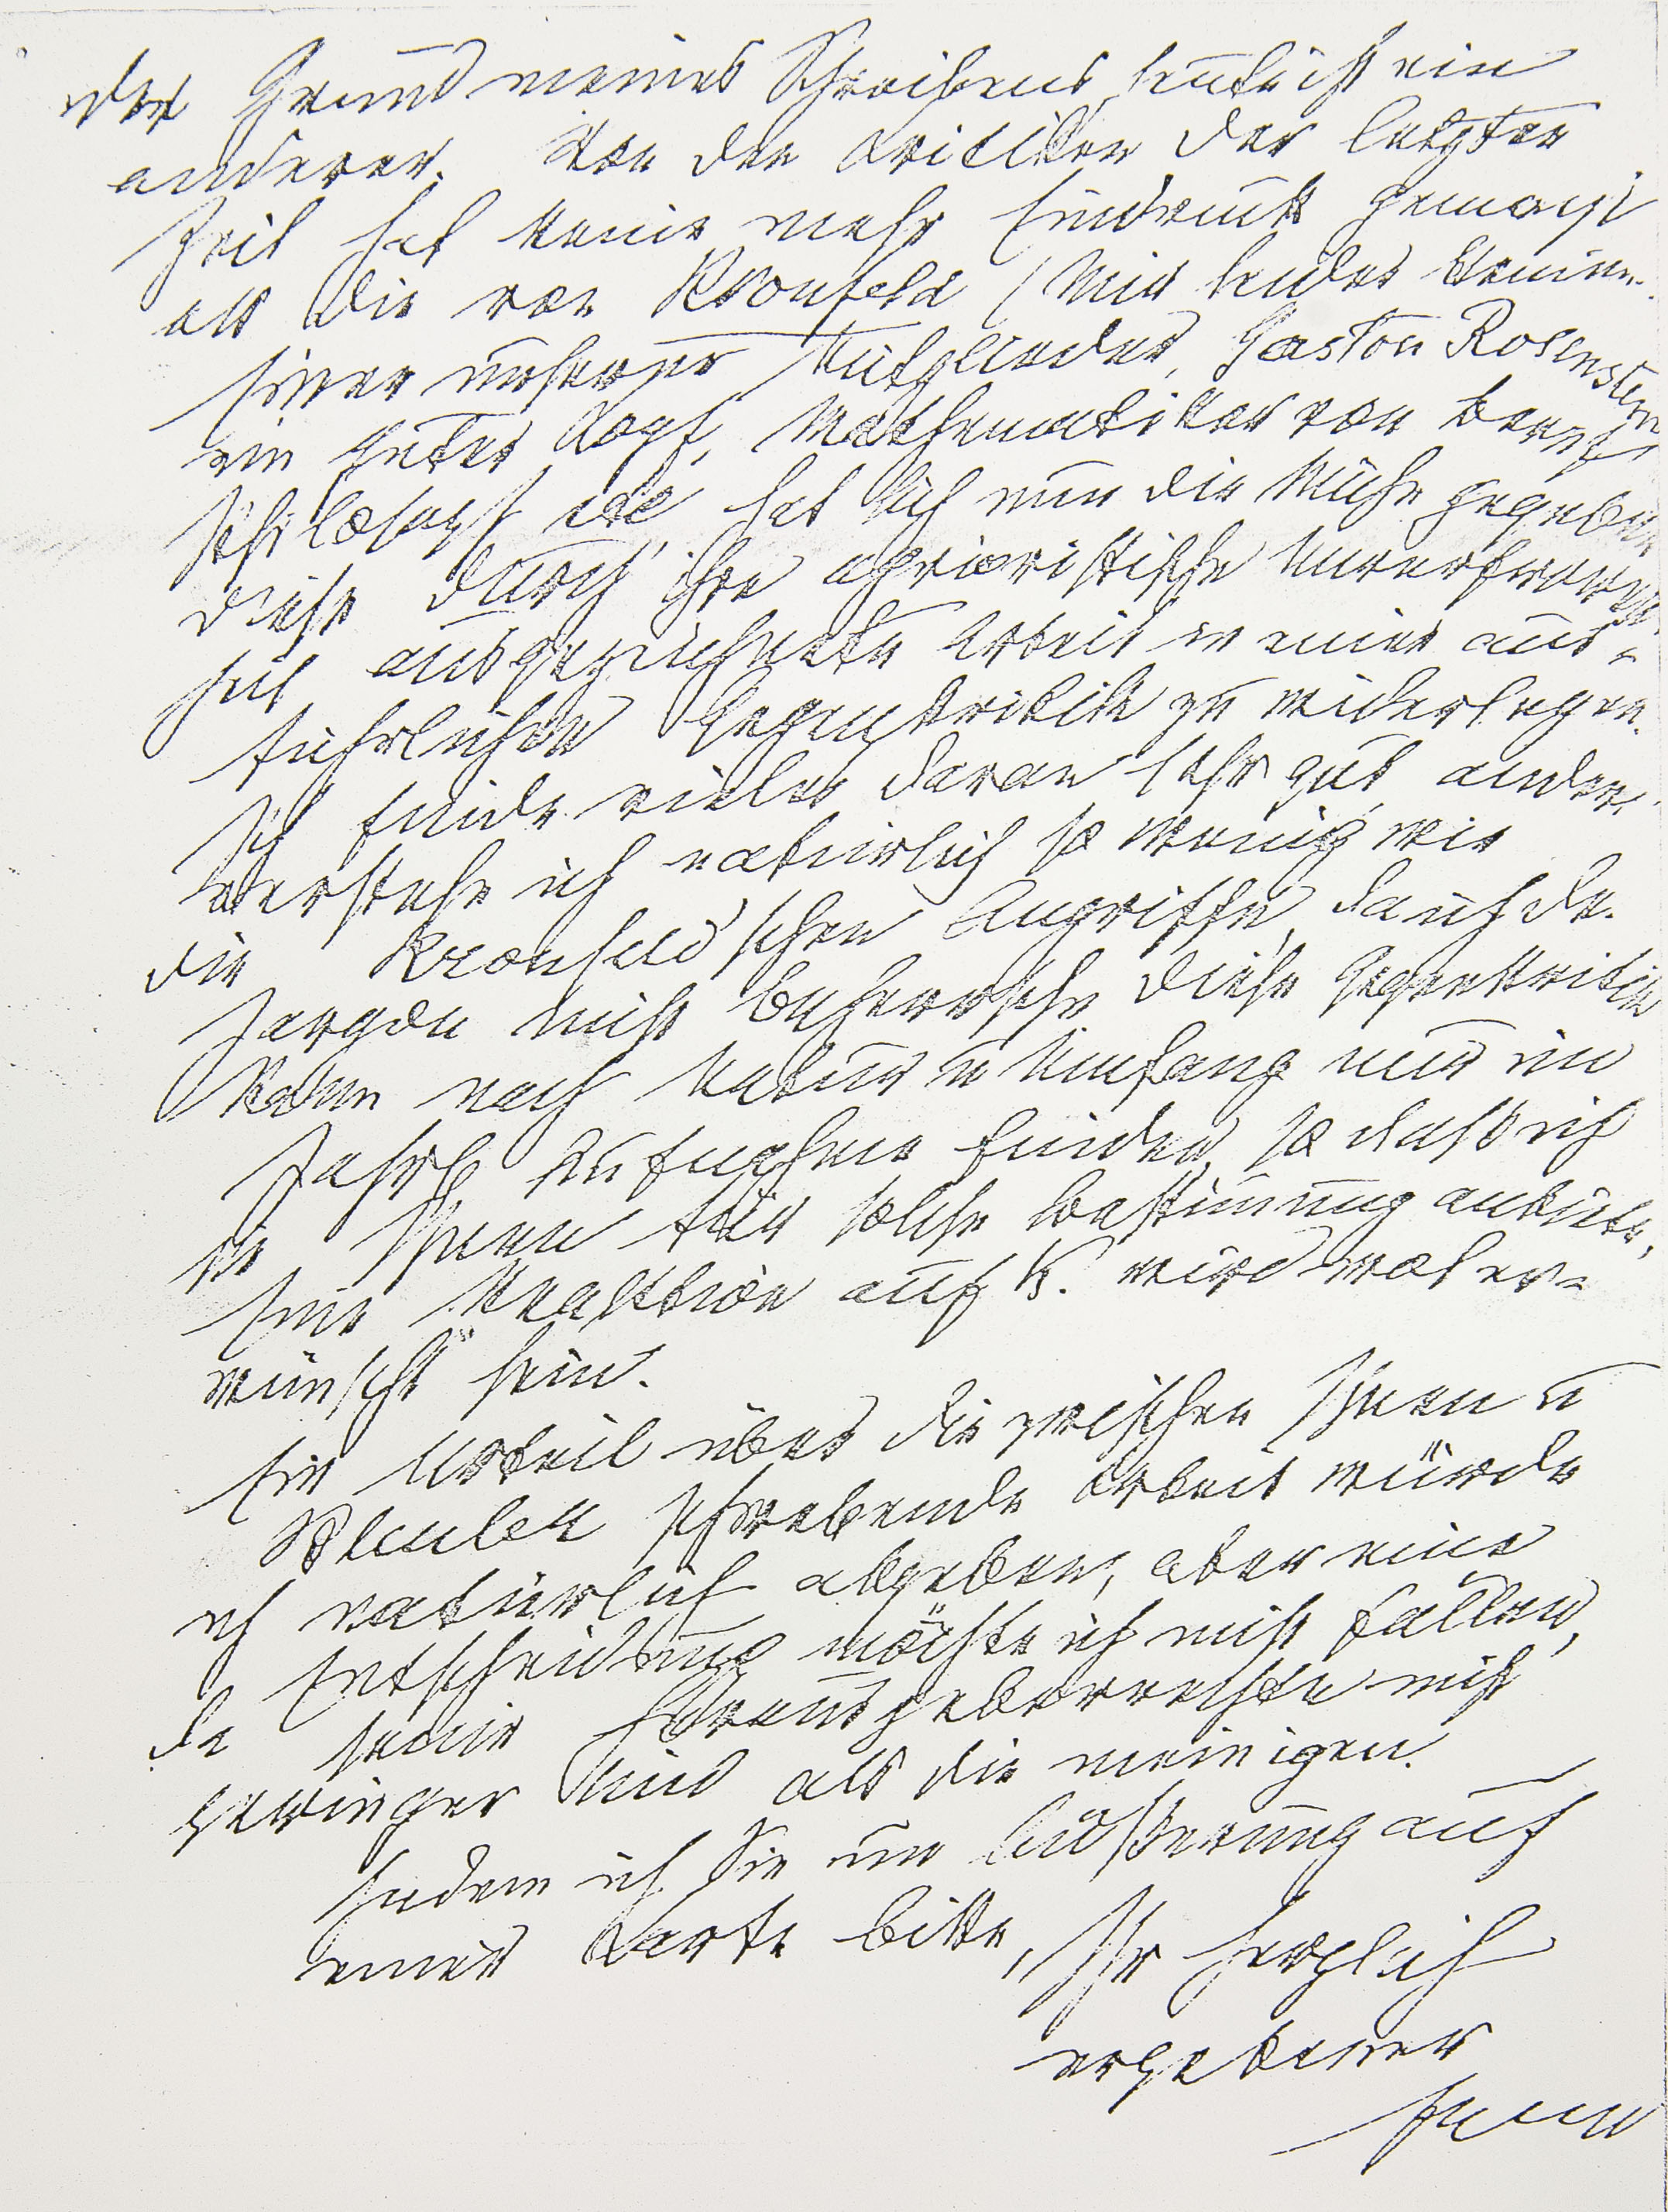 Der Grund meines Schreibens heute ist ein
anderer. Von den Kritiken der letzten
Zeit hat keine mehr Eindruck gemacht
als die von Kronfeld
Einer unserer Mitglieder, Gaston Rosenstein
ein guter Kopf, Mathematiker von Beruf,
Philosoph etc, hat sich nun die Mühe gegeben
diese durch ihre aprioristische
heit ausgezeichnete Arbeit in einer aus-
führlichen Gegenkritik zu widerlegen.
Ich finde vieles daran sehr gut, anderes
verstehe ich natürlich so wenig wie
die Kronfeld'schen Angriffe, da ich den
Jargon nicht beherrsche. Diese Gegenkritik
kann nach Natur u Umfang nur im
Jahrb. Aufnahme finden, so daß ich
sie Ihnen für solche Bestimmung anbiete.
Eine Reaktion auf K. wird wol er-
wünscht sein.
Ein Urteil über die zwischen Ihnen u
Bleuler schwebende Arbeit würde
ich natürlich abgeben, aber eine
Entscheidung möchte ich nicht fällen,
da seine Herausgeberrechte nicht
geringer sind als die meinigen.
Indem ich Sie um Äußerung auf
einer Karte bitte, Ihr herzlich
ergebener
Freud